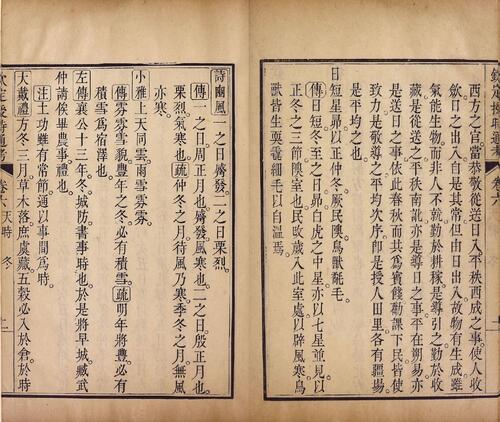 欽定授時通考 卷六
西方之官當恭敬從送日入平秩西成之事使人收
斂日之出入自是其常但由日出入故物有生成雖
氣能生物而非人不就勤於耕稼是導引之勤於收
藏是從送之平秩南訛亦是導日之事平在朔易亦
是送日之事依此春秋而共爲賓餞勸課下民皆使
致力是敬導之平均次序即是授人田里各有疆埸
是平均之也
日短星昴以正仲冬厥民隩鳥獸氄毛
傳日短冬至之日昴白虎之中星亦以七星並見以
正冬之三節隩室也民改歲入此室處以辟風寒鳥
獸皆生耎毳細毛以自溫焉
詩豳風一之日觱發二之日栗烈
傳一之日周正月也觱發風寒也二之日殷正月也
栗烈氣寒也疏仲冬之月待風乃寒季冬之月無風
亦寒
小雅上天同雲雨雪雰雰
傳雰雰雪貌豐年之冬必有積雪疏明年將豐必有
積雪爲宿澤也
左傳襄公十三年冬城防書事時也於是將早城臧武
仲請俟畢農事禮也
注土功雖有常節通以事間爲時
大戴禮方冬三月草木落庶虞藏五穀必入於倉於時
欽定授時通考 卷六 天時 冬 十一